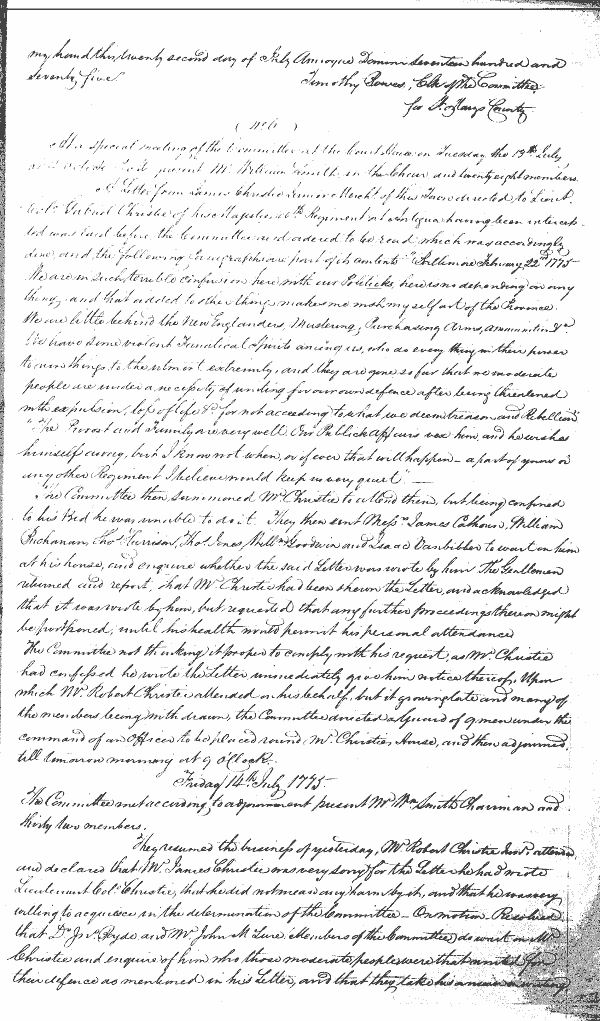 my hand this twenty second day of July Annoque Domini seventeen hundred and
seventy five Timothy Bowes, Clk of the Committee
for St. Marys County
(No. 6)
At a special meeting of the Committee at the Court House on Tuesday the 13th July,
at o'Clock present Mr. William Smith in the Chair and twenty eight members.
A Letter from James Christie Junior Mercht. of this Town directed to Lieut.
Colo. Gabriel Christie of his Majesties 60th Regiment at Antigua having been intercep-
ted was laid before the Committee and ordered to be read which was accordingly
done, and the following Paragraphs are part of its contents "Baltimore February 22d 1775
We are in such terrible confusion here with our Politicks, there is no depending on any
thing, and that added to other things, makes me wish myself out of the Province.
We are little behind the New Englanders, Mustering, Purchasing Arms, ammunition &a.
We have some violent Fanatical Spirits among us, who do every thing in their power
to run things to the utmost extremity, and they are gone so far that we moderate
people are under a necessity of uniting for our own defence after being threatened
with expulsion, loss of life &c. for not acceeding to what we deem treason and Rebellion"
"The Provost and Family are very well. Our Publick affairs vex him, and he wishes
himself away, but I know not when, or if ever that will happen – a part of yours or
any other Regiment I believe would keep us very quiet" —
The Committee then summoned Mr. Christie to attend them, but being confined
to his Bed he was unable to do it. They then sent Messrs. James Calhoun, William
Buchanan, Thos. Harrison, Thos. Jones, Willm. Goodwin and Isaac Vanbibber to wait on him
at his house, and enquire whether the said Letter was wrote by him. The Gentlemen
returned and report, that Mr. Christie had been shewn the Letter, and acknowledged
that it was wrote by him, but requested that any further proceedings thereon might
be postponed, until his health would permit his personal attendance
The Committee not thinking it proper to comply with his request, as Mr. Christie
had confessed he wrote the Letter immediately gave him notice thereof, Upon
which Mr. Robert Christie attended on his behalf, but it growing late and many of
the members being withdrawn, the Committee directed a Guard of 9 men under the
command of an Officer to be placed round Mr. Christies House, and then adjourned
till tomorrow morning at 9 O'Clock.
Friday 14th. July 1775.
The Committee met according to adjournment present Mr. Wm. Smith Chairman and
thirty two members.
They resumed the business of yesterday, Mr. Robert Christie Junr. attended
and declared that Mr. James Christie was very sorry for the Letter he had wrote
Lieutenant Colo. Christie, that he did not mean any harm by it, and that he was very
willing to acquiesce in the determination of the Committee – On motion Resolved
that Dr. Jno. Boyde and Mr. John M Lure (Members of the Committee) do wait on Mr.
Christie and enquire of him who those moderate people were that united for
their defence as mentioned in his Letter, and that they take his answer in writing